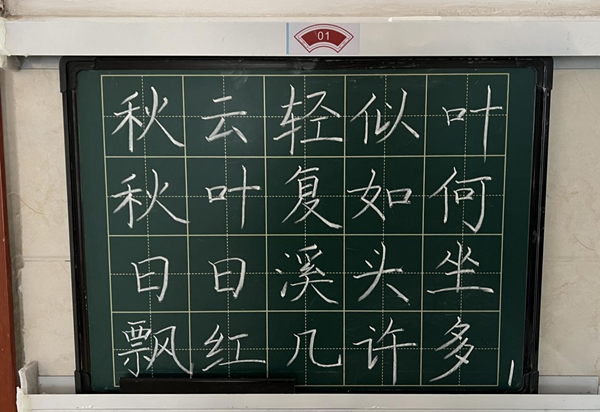 01
秋云轻似叶
秋叶复如何
日日溪头坐
飘红几许多